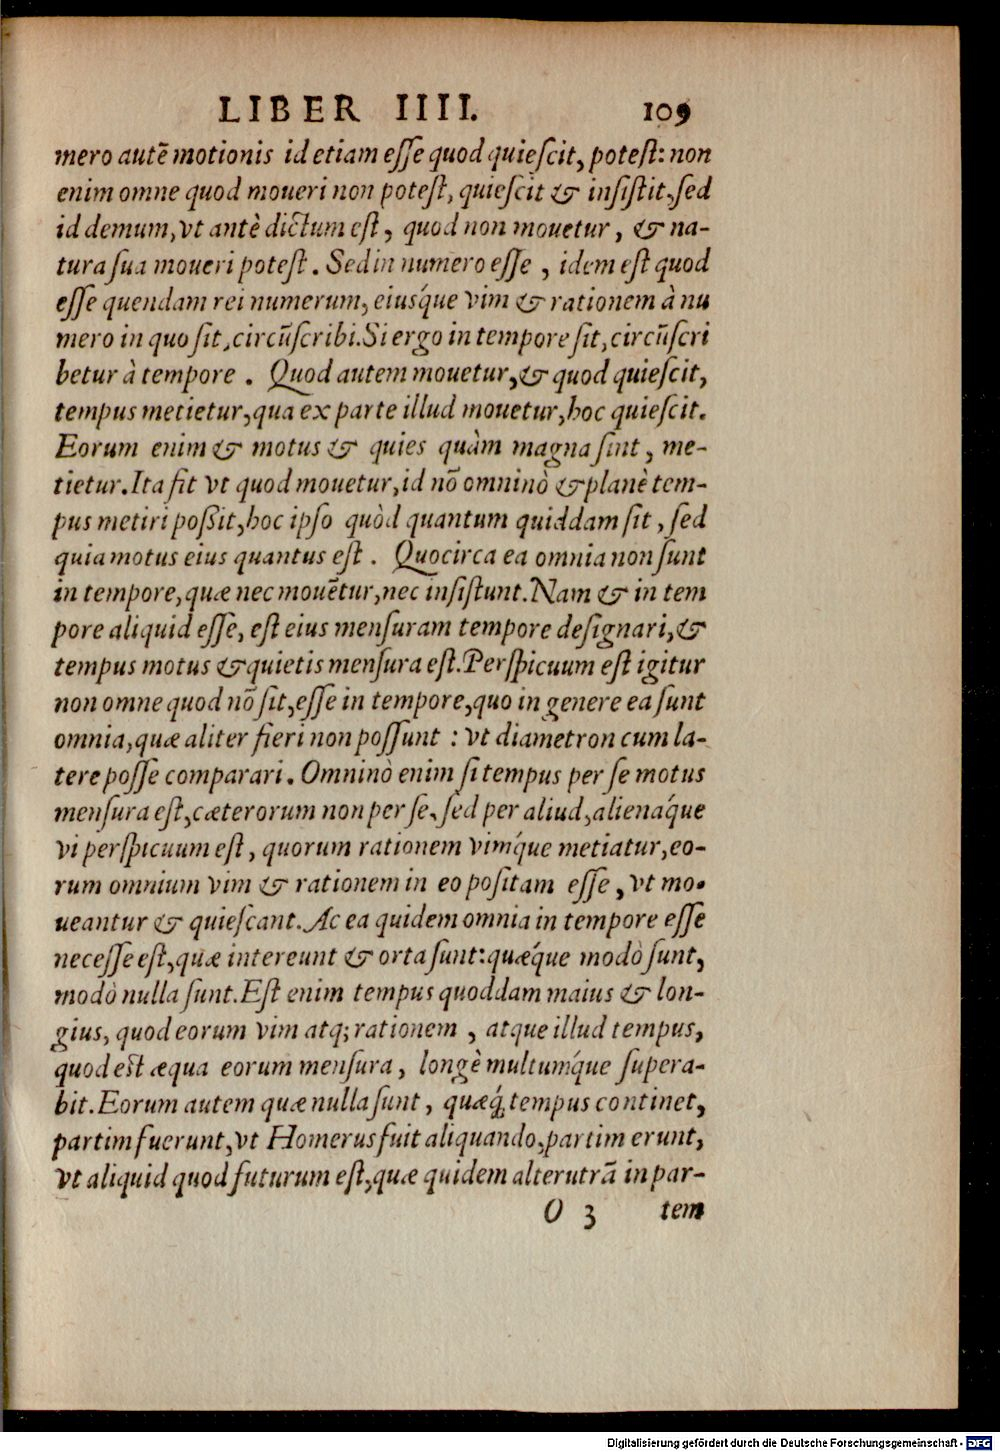 LIBER IIII. 109
mero autē motionis id etiam eſſe quod quieſcit, poteſt: non
enim omne quod moueri non poteſt, quieſcit & inſiſtit, ſed
id demum, vt antè dictum eſt, quod non mouetur, & na-
tura ſua moueri poteſt. Sed in numero eſſe, idem eſt quod
eſſe quendam rei numerum, eiuśque vim & rationem à nu
mero in quo ſit, circūſcribi. Si ergo in tempore ſit, circūſcri
betur à tempore. Quod autem mouetur, & quod quieſcit,
tempus metietur, qua ex parte illud mouetur, hoc quieſcit.
Eorum enim & motus & quies quàm magna ſint, me-
tietur. Ita fit vt quod mouetur, id nō omninò & planè tem-
pus metiri poßit, hoc ipſo quòd quantum quiddam ſit, ſed
quia motus eius quantus eſt. Quocirca ea omnia non ſunt
in tempore, quæ nec mouētur, nec inſiſtunt. Nam & in tem
pore aliquid eſſe, eſt eius menſuram tempore deſignari, &
tempus motus & quietis menſura eſt. Perſpicuum eſt igitur
non omne quod nō ſit, eſſe in tempore, quo in genere ea ſunt
omnia, quæ aliter fieri non poſſunt: vt diametron cum la-
tere poſſe comparari. Omninò enim ſi tempus per ſe motus
menſura eſt, cæterorum non per ſe, ſed per aliud, alienáque
vi perſpicuum eſt, quorum rationem vimq́ue metiatur, eo-
rum omnium vim & rationem in eo poſitam eſſe, vt mo-
ueantur & quieſcant. Ac ea quidem omnia in tempore eſſe
neceſſe eſt, quæ intereunt & orta ſunt: quæq́ue modò ſunt,
modò nulla ſunt. Eſt enim tempus quoddam maius & lon-
gius, quod eorum vim atq; rationem, atque illud tempus,
quod eſt æqua eorum menſura, longè multumq́ue ſupera-
bit. Eorum autem quæ nulla ſunt, quæq́; tempus continet,
partim fuerunt, vt Homerus fuit aliquando, partim erunt,
vt aliquid quod futurum eſt, quæ quidem alterutrā in par-
O 3 tem
Digitalisierung gefördert durch die Deutsche Forschungsgemeinschaft - DFG